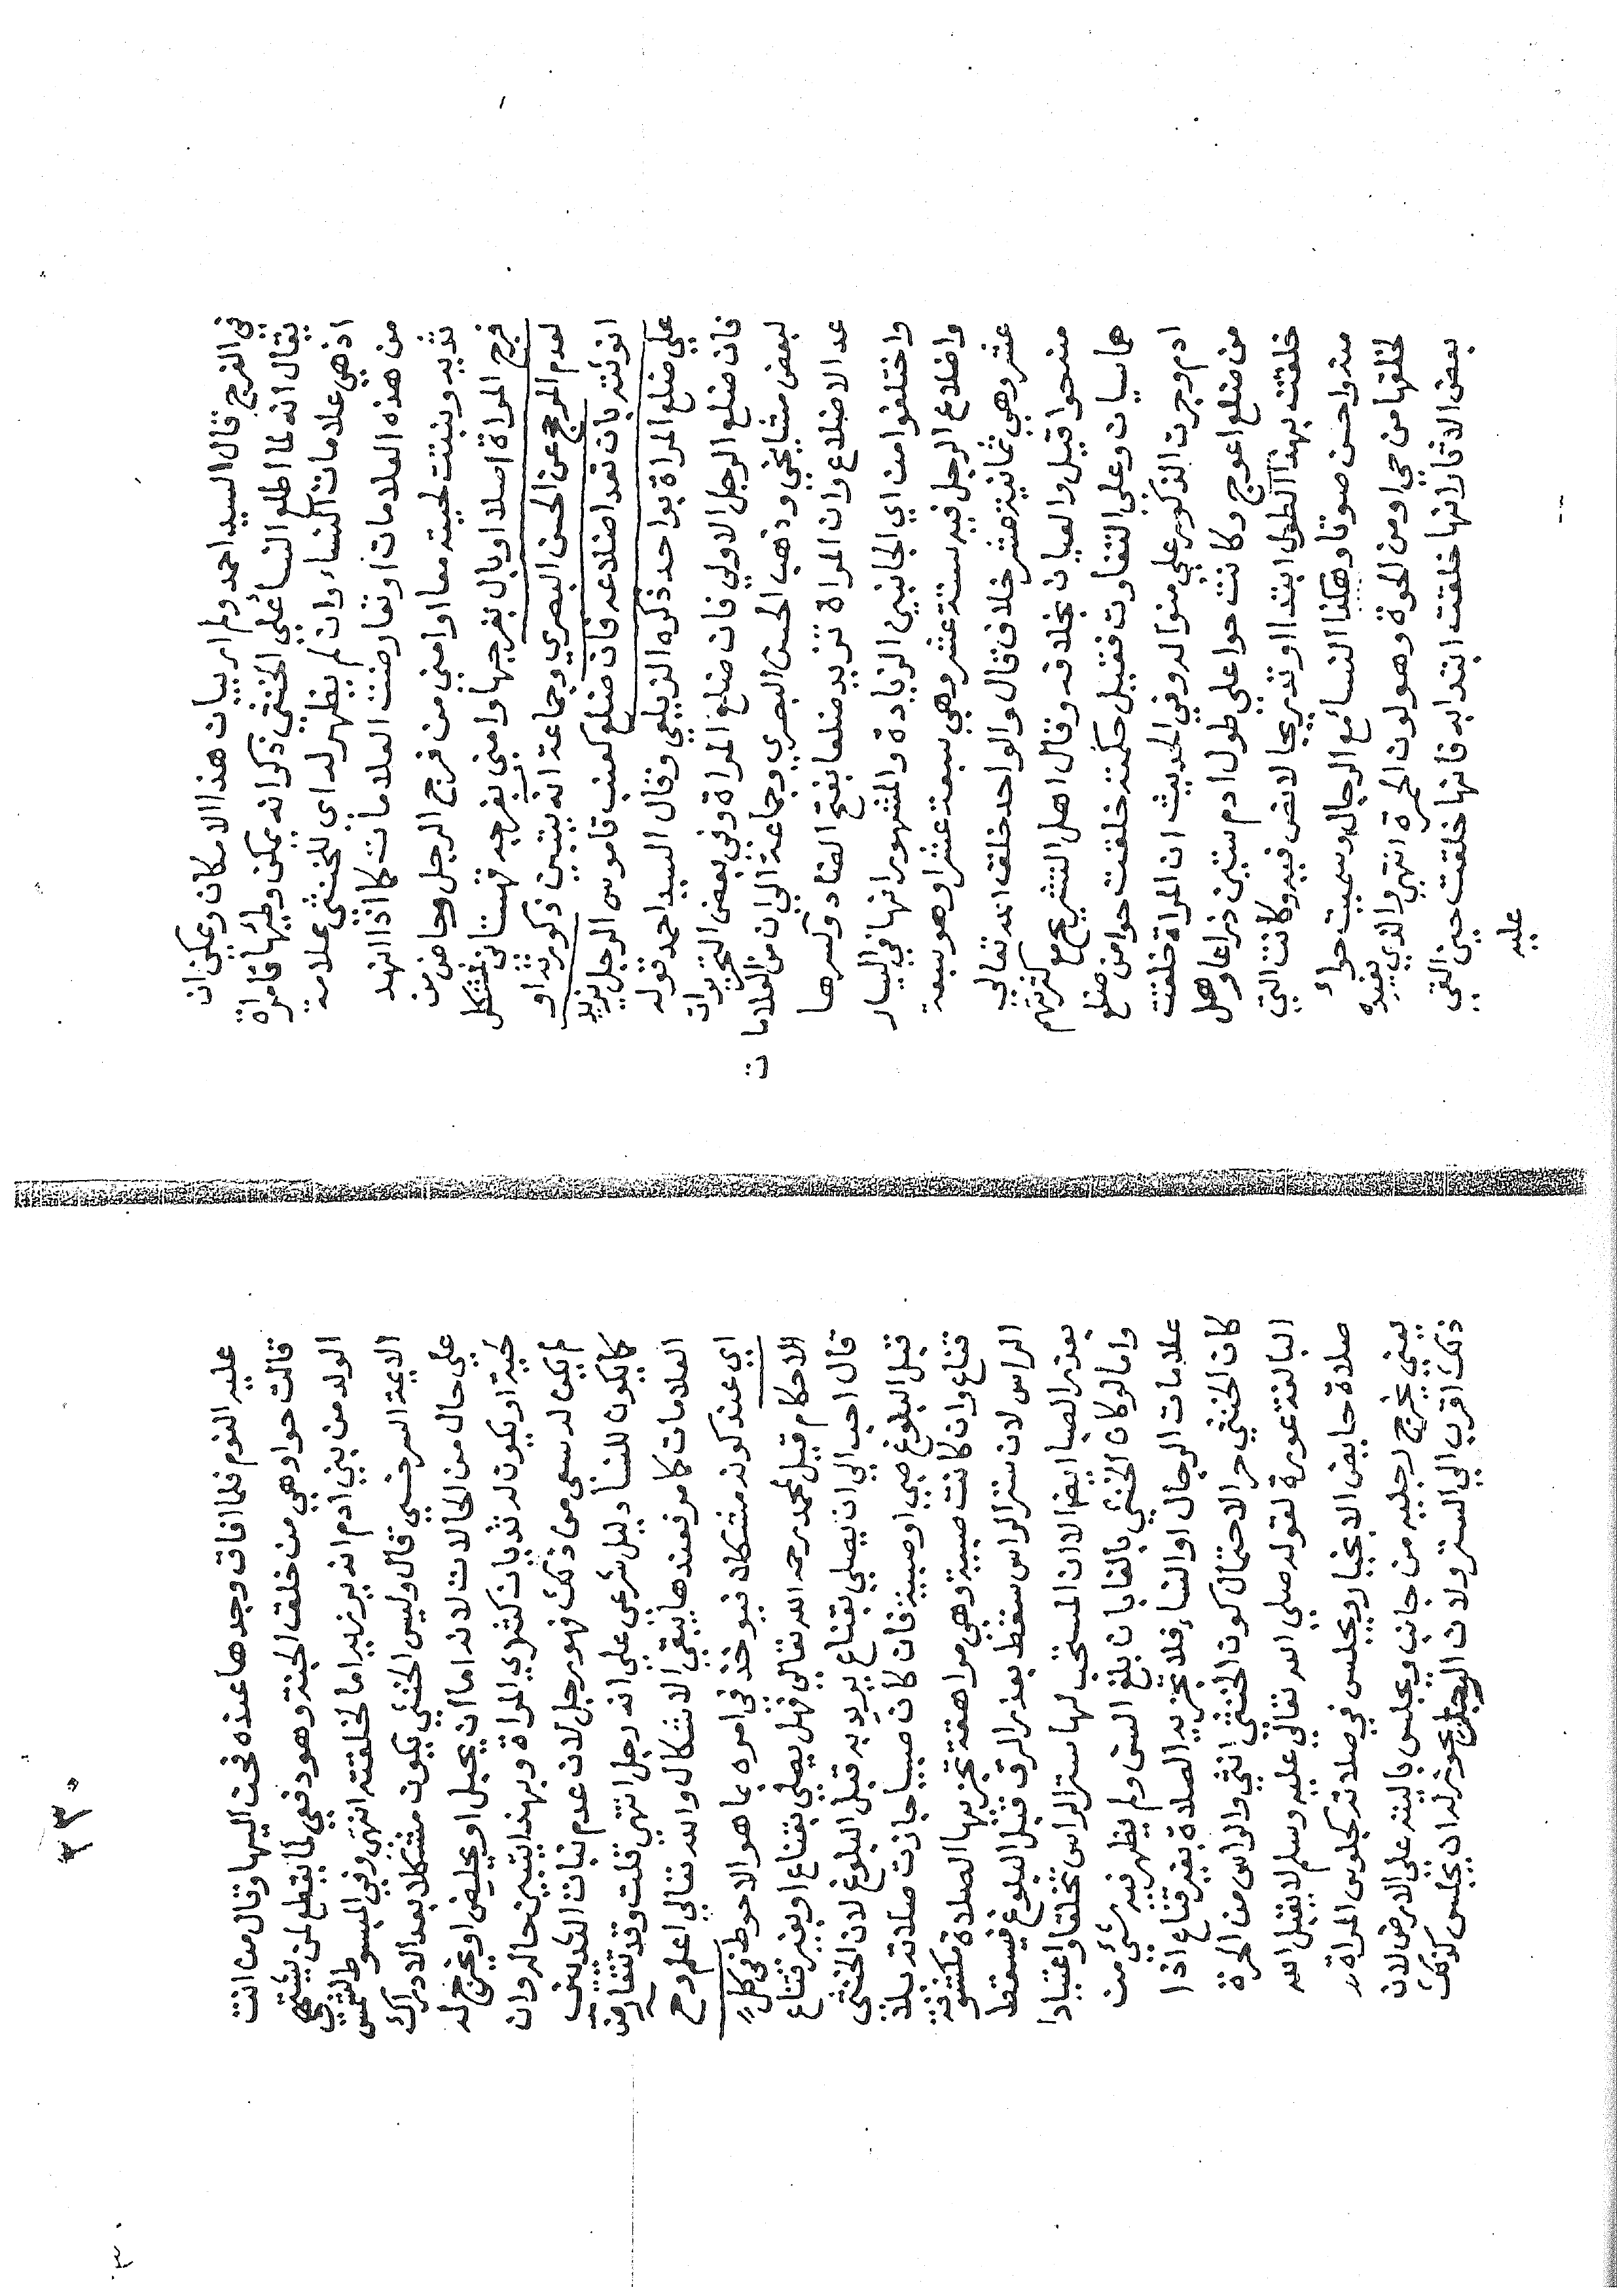 في الفرج قال السيد احمد ولم ار بيان هذا الامكان ويمكن ان
يقال انه لما اطلع النسا علي الخنثي ذكر انه يمكن وطئها فامراة
اذ هي علامات النساء وان لم يظهر له اي للخنثي علامة
من هذه العلامات او تعارضت العلامات كما اذا نهد
ثديه ونبتت لحيته معا او امني من فرج الرجل وحاض من
فرج المراة اصلا او بال بفرجها وامني بفرجه فمشكل
لعدم المرجح عن الحسن البصري وجماعة انه يتبين ذكورته او
انوثته بان تعد اضلاعه فان ضلع كعنب قاموس الرجل يزيد
علي ضلع المراة بواحد ذكره الزيلعي وقال السيد احمد قوله
فان ضلع الرجل الاولي فان ضلع المراة وفي بعض التحريرات
لبعض مشايخي وذهب الحسن البصري وجماعة الي ان من العلامات
عد الاضلاع وان المراة تزيد ضلعا بفتح الضاد وكسرها
واختلفوا من اي الجانبين الزيادة والمشهور انها في اليسار
واضلاع الرجل فيه ستة عشر وهي سبعة عشر او هو سبعة
عشر وهي ثمانية عشر خلاف قال والواحد خلق الله تعالي
منه حوا قيل والعيان بخلافه وقال اهل التشريح مع كثرتهم
هما سيان وعلي التفاوت فقيل حكمته خلقت حوا من ضلع
ادم وجرت الذكور علي منواله وفي الحديث ان المراة خلقت
من ضلع اعوج وكانت حوا علي طول ادم ستين ذراعا وهل
خلقت بهذا الطول ابتدا او تدريجا لا نص فيه وكانت التي
منه واحسن صوتا وهكذا النسا مع الرجال وسميت حواء
لخلقها من حي او من الحوة وهو لون الحمرة انتهي والذي يفيده
بعض الاثار انها خلقت ابتدا به فانها خلقت حين القي
عليه
٣٣٠
عليه النوم فلما افاق وجدها عنده فحن اليها وقال من انت
قالت حوا وهي من خلق الجنة وهو دفعي لما يقطع لمن يشتهي
الولد من بني ادم انه يزيد اما لخلقته انتهي وفي المبسوط لشمس
الايمة السرخسي قال وليس الخنثي يكون مشكلا بعد الادراك
علي حال من الحالات لانه اما ان يحبل او يحيض او يخرج له
لحية او يكون له ثديان كثدي المراة وبهذا يتبين حاله وان
لم يكن له سي من ذلك فهو رجل لان عدم نبات الثديين
كما يكون للنسا دليل شرعي علي انه رجل انتهي قلت وقد تتعارض
العلامات كما مر فعندها يبقي الاشكال والله تعالي اعلم وح
اي عند كونه مشكلا فيوخذ في امره بما هو الاحوط في كل
الاحكام قيل لمحمد رحمه الله تعالي فهل يصلي بقناع او بغير قناع
قال احب الي ان يصلي بقناع يريد به قبل البلوغ لان الخنثي
قبل البلوغ صبي او صبية فان كان صبيا جازت صلاته بلا
قناع وان كانت صبية وهي مراهقة تجزيها الصلاة مكشوفة
الراس لان ستر الراس سقط بعذر الرق قبل البلوغ فيسقط
بعذر الصبا ايضا الا ان المستحب لها ستر الراس تخلقا واعتيادا
واما لو كان الخنثي بالغا بان بلغ السن ولم يظهر فيه شئ من
علامات الرجال او النساء فلا تجزيه الصلاة بغير قناع اذا
كان الخنثي حر الاحتمال كون الخنثي انثي والراس من الحرة
البالغة عورة لقوله صلي الله تعالي عليه وسلم لا يقبل الله
صلاة حايض الا بخمار ويجلس في صلاته كجلوس المراة
يعني يخرج رجليه من جانب ويجلس باليته علي الارض لان
ذلك اقرب الي الستر ولان الرجل يجوز له ان يجلس كذلك